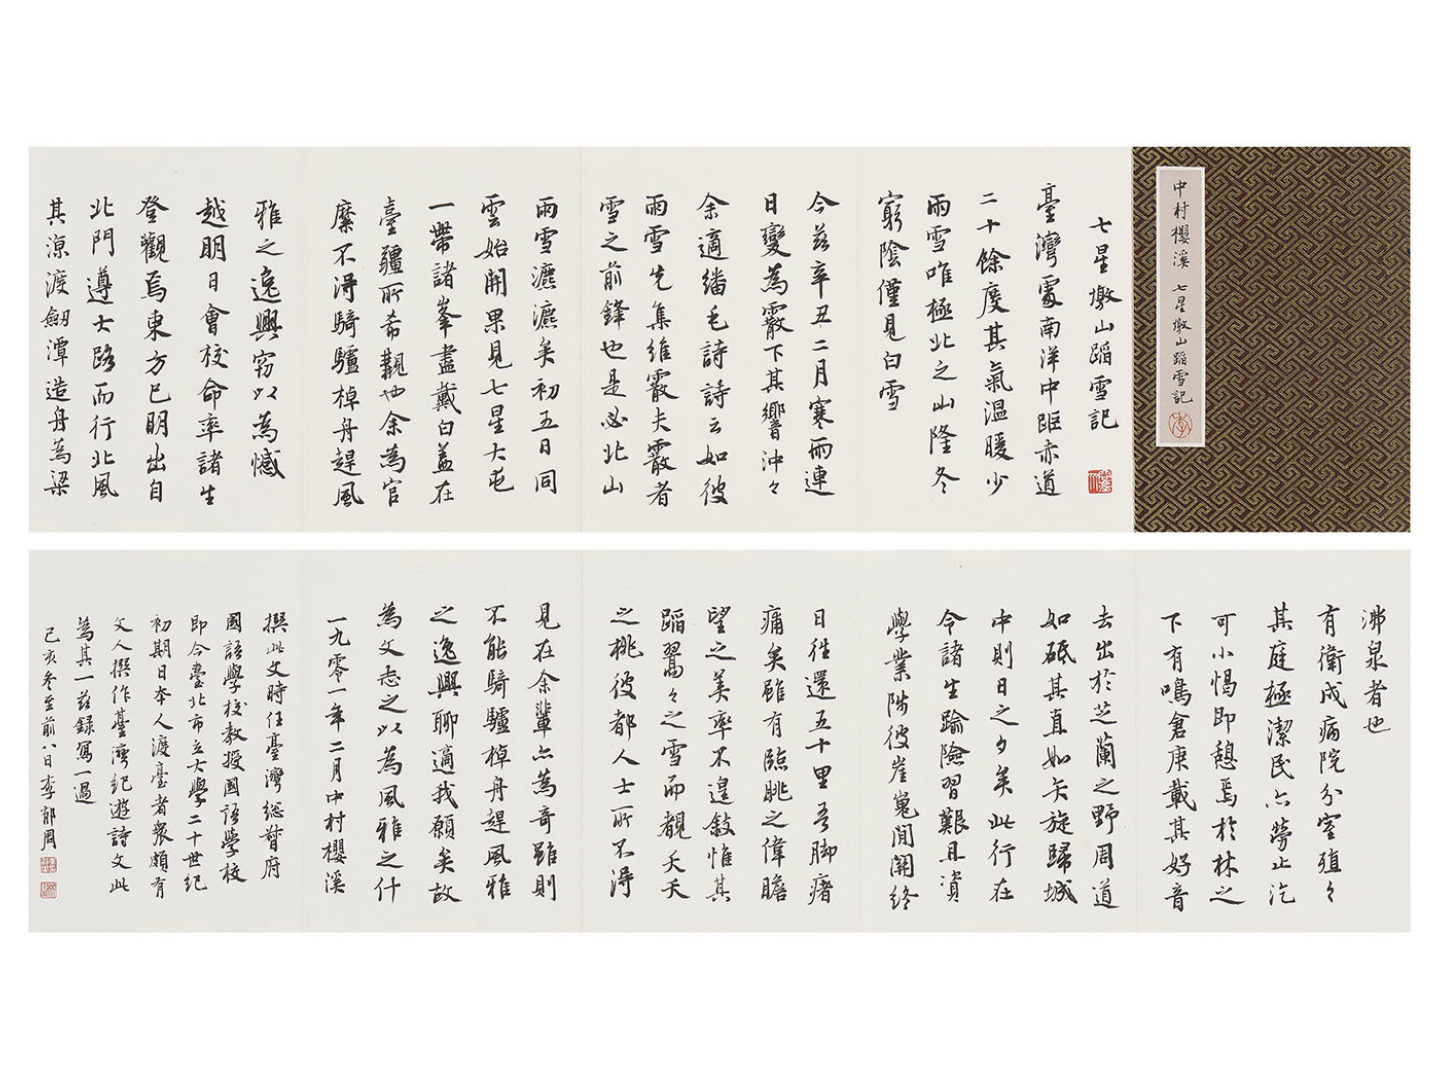 中村櫻溪 七星墩山蹈雪記
七星墩山蹈雪記
臺灣處南洋中距赤道
二十餘度其氣溫暖少
雨雪唯極北之山隆冬
窮陰僅見白雪
今茲辛丑二月寒雨連
日變為霰下其響沖々
余適繙毛詩詩云如彼
雨雪先集維霰夫霰者
雪之前鋒也是必北山
雨雪瀌瀌矣初五日同
雲始開果見七星大屯
一帶諸峯盡戴白蓋在
臺疆所希觀也余為官
縻不淂騎驢棹舟趕風
雅之逸興窃以為憾
越明日會校命率諸生
登觀焉東方已明出自
北門遵士路而行北風
其涼渡劒潭造舟為梁
沸泉者也
有衛戍病院分室殖々
其庭極潔民亦勞止汔
可小愒即憩焉於林之
下有鳴倉庚載其好音
去出於芝蘭之野周道
如砥其直如矢旋歸城
中則日之夕矣此行在
今諸生踰險習艱且資
學業階彼崔嵬閒關終
日往還五十里吾脚瘏
痡矣雖有臨眺之偉瞻
望之美率不遑敍惟其
蹈翯々之雪而覩夭夭
之桃彼都人士所不淂
見在余輩亦為奇雖則
不能騎驢棹舟趕風雅
之逸興聊適我願矣故
為文志之以為風雅之什
一九零一年二月中村櫻溪
撰此文時任臺灣總督府
國語學校教授國語學校
即今臺北市立大學二十世紀
初期日本人渡臺者衆頗有
文人撰作臺灣紀遊詩文此
為其一茲錄寫一過
己亥冬至前八日李郁周